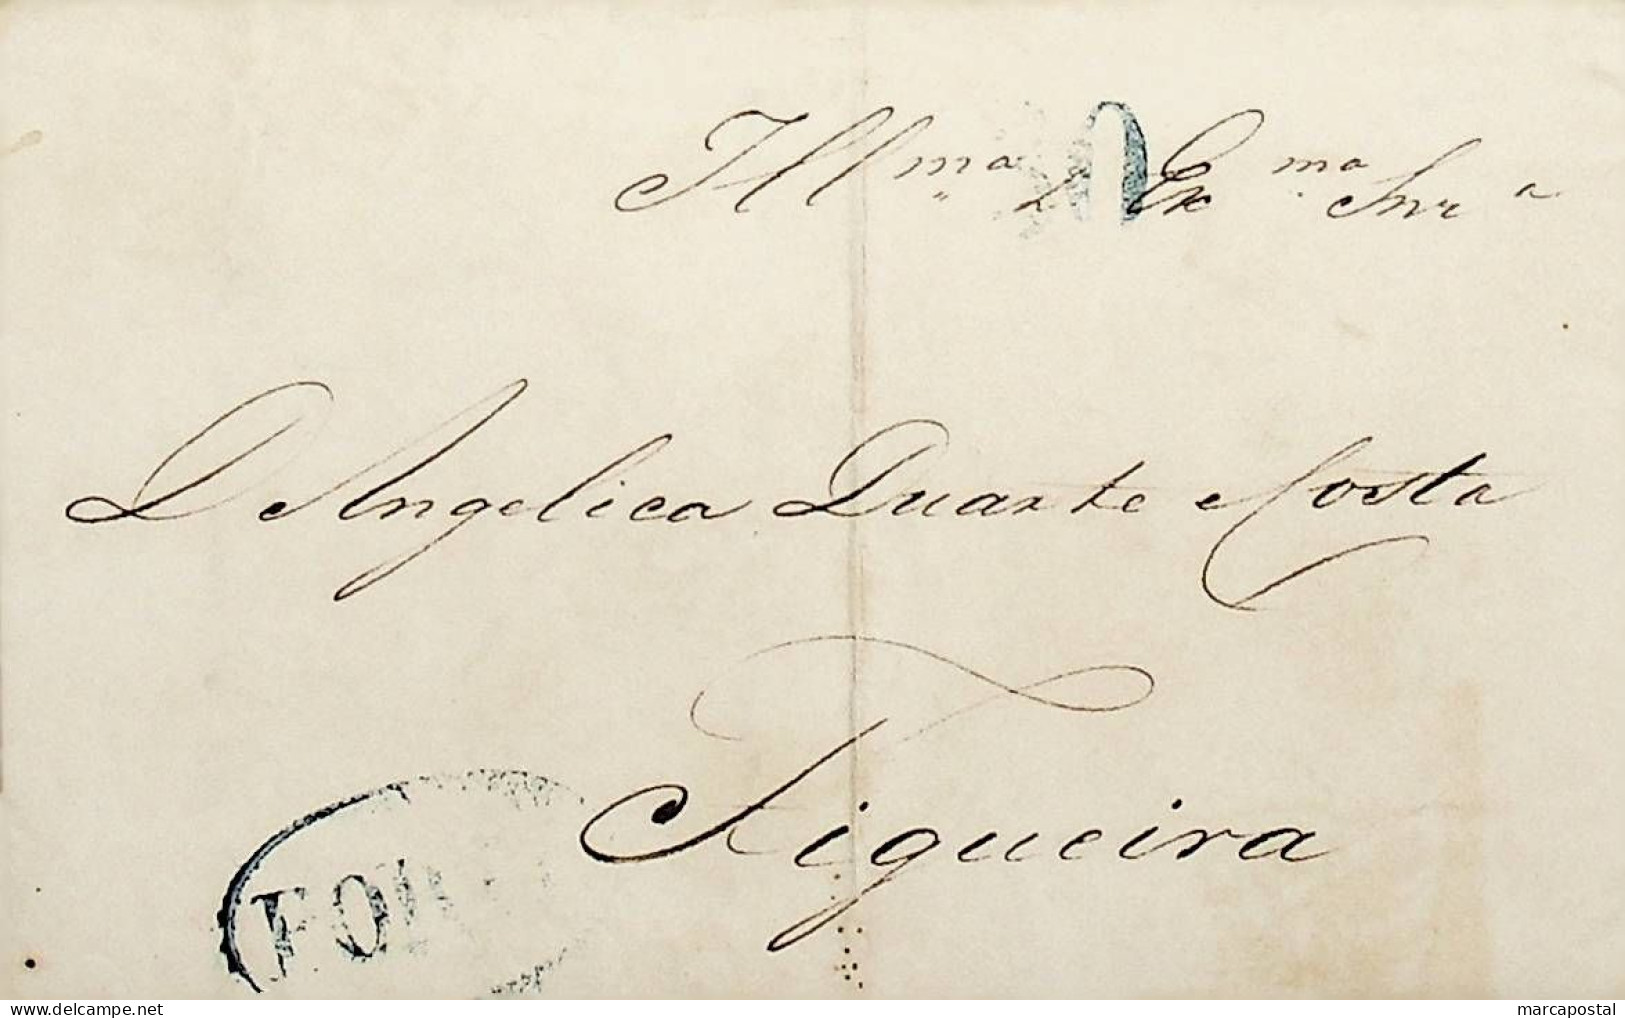 Ill.ma Ex.ma Snr.a
D Angelica Duarte Costa
Figueira
delcampe.net
marcapostal